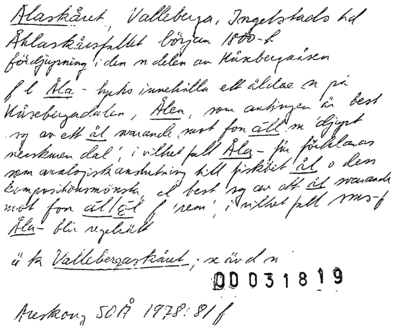 Ålaskåret, Valleberga, Ingelstads hd
Åhlaskårsfallet början 1800-t
fördjupning i den n delen av Håxbergaåsen
f l Åla- tycks innehålla ett äldre n på
Håxebergadalen, Ålen, som antingen är best
sg av ett ål svarande mot fon áll m 'djupt
nerskuren dal', i vilket fall Åla- får förklaras
som analogisk anslutning till fisknet ål o dess
kompositionsmönster el best sg av ett ål svarande
mot fon ál/ól f 'rem', i vilket fall sms-f
Åla- blir regelrätt
ä ta Vallebergaskåret; s ä v d n
00031819
Areskoug SOÅ 1978:81 f